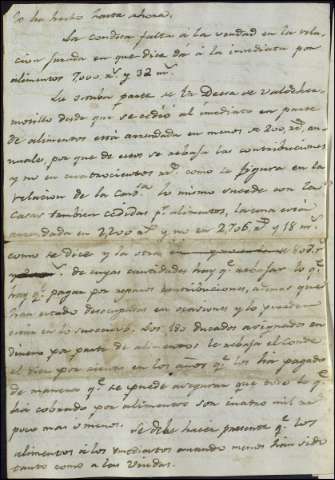 lo ha hecho hasta ahora.
La condesa falta á la verdad en la rela-
cion jurada en que dice dá á la inmediata por
alimentos 7,000 r.s y 32 m.s
La sesta parte de la Dehesa de Valdeher-
mosillo desde que se cedió al inmediato en parte
de alimentos está arrendada en menos de 200 r.s an-
nuales, por que de estos se rebaja las contribuciones
y no en cuatrocientos r.s como la figura en la
relacion de la Cond.a lo mismo sucede con las
casas tambien cedidas p.r alimentos, la una está
arrendada en 2,200 r.s y no en 2,706 r.s y 18 m.s
como se dice y la otra en
de cuyas cantidades hay q.e rebajar lo q.e
hay q.e pagar por reparos contribuciones, ademas que
han estado desocupadas en ocasiones y lo pueden
estar en lo sucesivo. Los 180 ducados asignados en
dinero por parte de alimentos le rebaja el Conde
el diez por ciento en los años q.e los ha pagado
de manera q.e se puede asegurar que todo lo q.e
ha cobrado por alimentos son cuatro mil reales
poco mas o menos. Se debe hacer presente q.e los
alimentos á los inmediatos cuando menos han sido
tanto como a las Viudas.